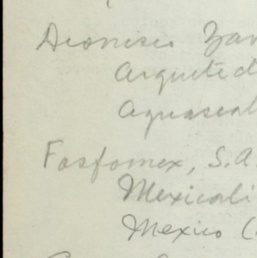 Dionisio Zan
Arquitecd
Aguascal
Fosfomex, S.A.
Mexicali
Mexico (